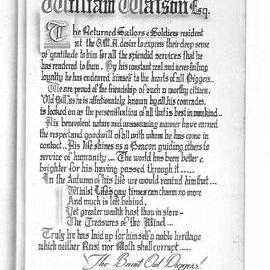 William Watson Esq.
The Returned Sailors & Soldiers resident
at the O.M.H. desire to express their deep sense
of gratitude to him for all the splendid services that he
has rendered to them. By his constant zeal and never failing
loyalty he has endeared himself to the hearts of all Diggers..
We are proud of the friendship of such a worthy citizen.
"Old Bill," as he is affectionately known by all his comrades,
is looked on as the personification of all that is best in mankind..
His benevolent nature and unassuming manner have earned
the respect and goodwill of all with whom he has come in
contact.. His life shines as a Beacon guiding others to
service of humanity... The world has been better &
brighter for his having passed through it.....
In the Autumn of his life we would remind him that...
Whilst Life's gay times can charm no more
And much is left behind,
Yet greater wealth hast thou in store—
The Treasures of the Mind...
Truly he has laid up for himself a noble heritage
which neither Rust nor Moth shall corrupt.....
"The Burnt Out Diggers"